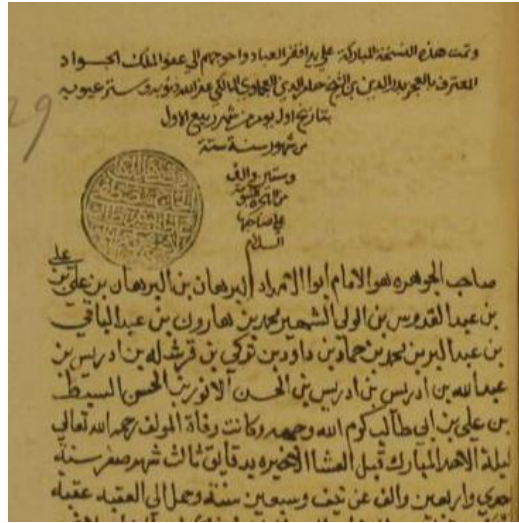 وتمت هذه النسخة المباركة علي يد افقر العباد واحوجهم الي عفو الملك الجواد
المعترف بالعجز بدر الدين بن الشيخ الدين المالكي غفر الله ذنوبه وستر عيوبه
بتاريخ اول يوم من شهر ربيع الاول
من شهور سنة ستة
وستين والف
من الهجرة النبوية
علي صاحبها
السلام
صاحب الجوهره هو الامام ابوا الامداد البرهان بن البرهان بن علي بن علي
بن عبد القدوس بن الولي الشهير محمد بن هارون بن عبد الباقي
بن عبد البر بن محمد بن حماد بن داود بن تركي بن قرشله بن ادريس بن
عبد الله بن ادريس بن ادريس بن ادريس بن الحسن الانور بن الحسن السبط
بن علي بن ابي طالب كرم الله وجهه وكانت وفاة المولف رحمه الله تعالي
ليلة الاحد المبارك قبل العشا الاخيره بدقايق ثالث شهر صفر سنة
احدي واربعين والف عن نيف وسبعين سنة وحمل الي العقبه عقبة
29